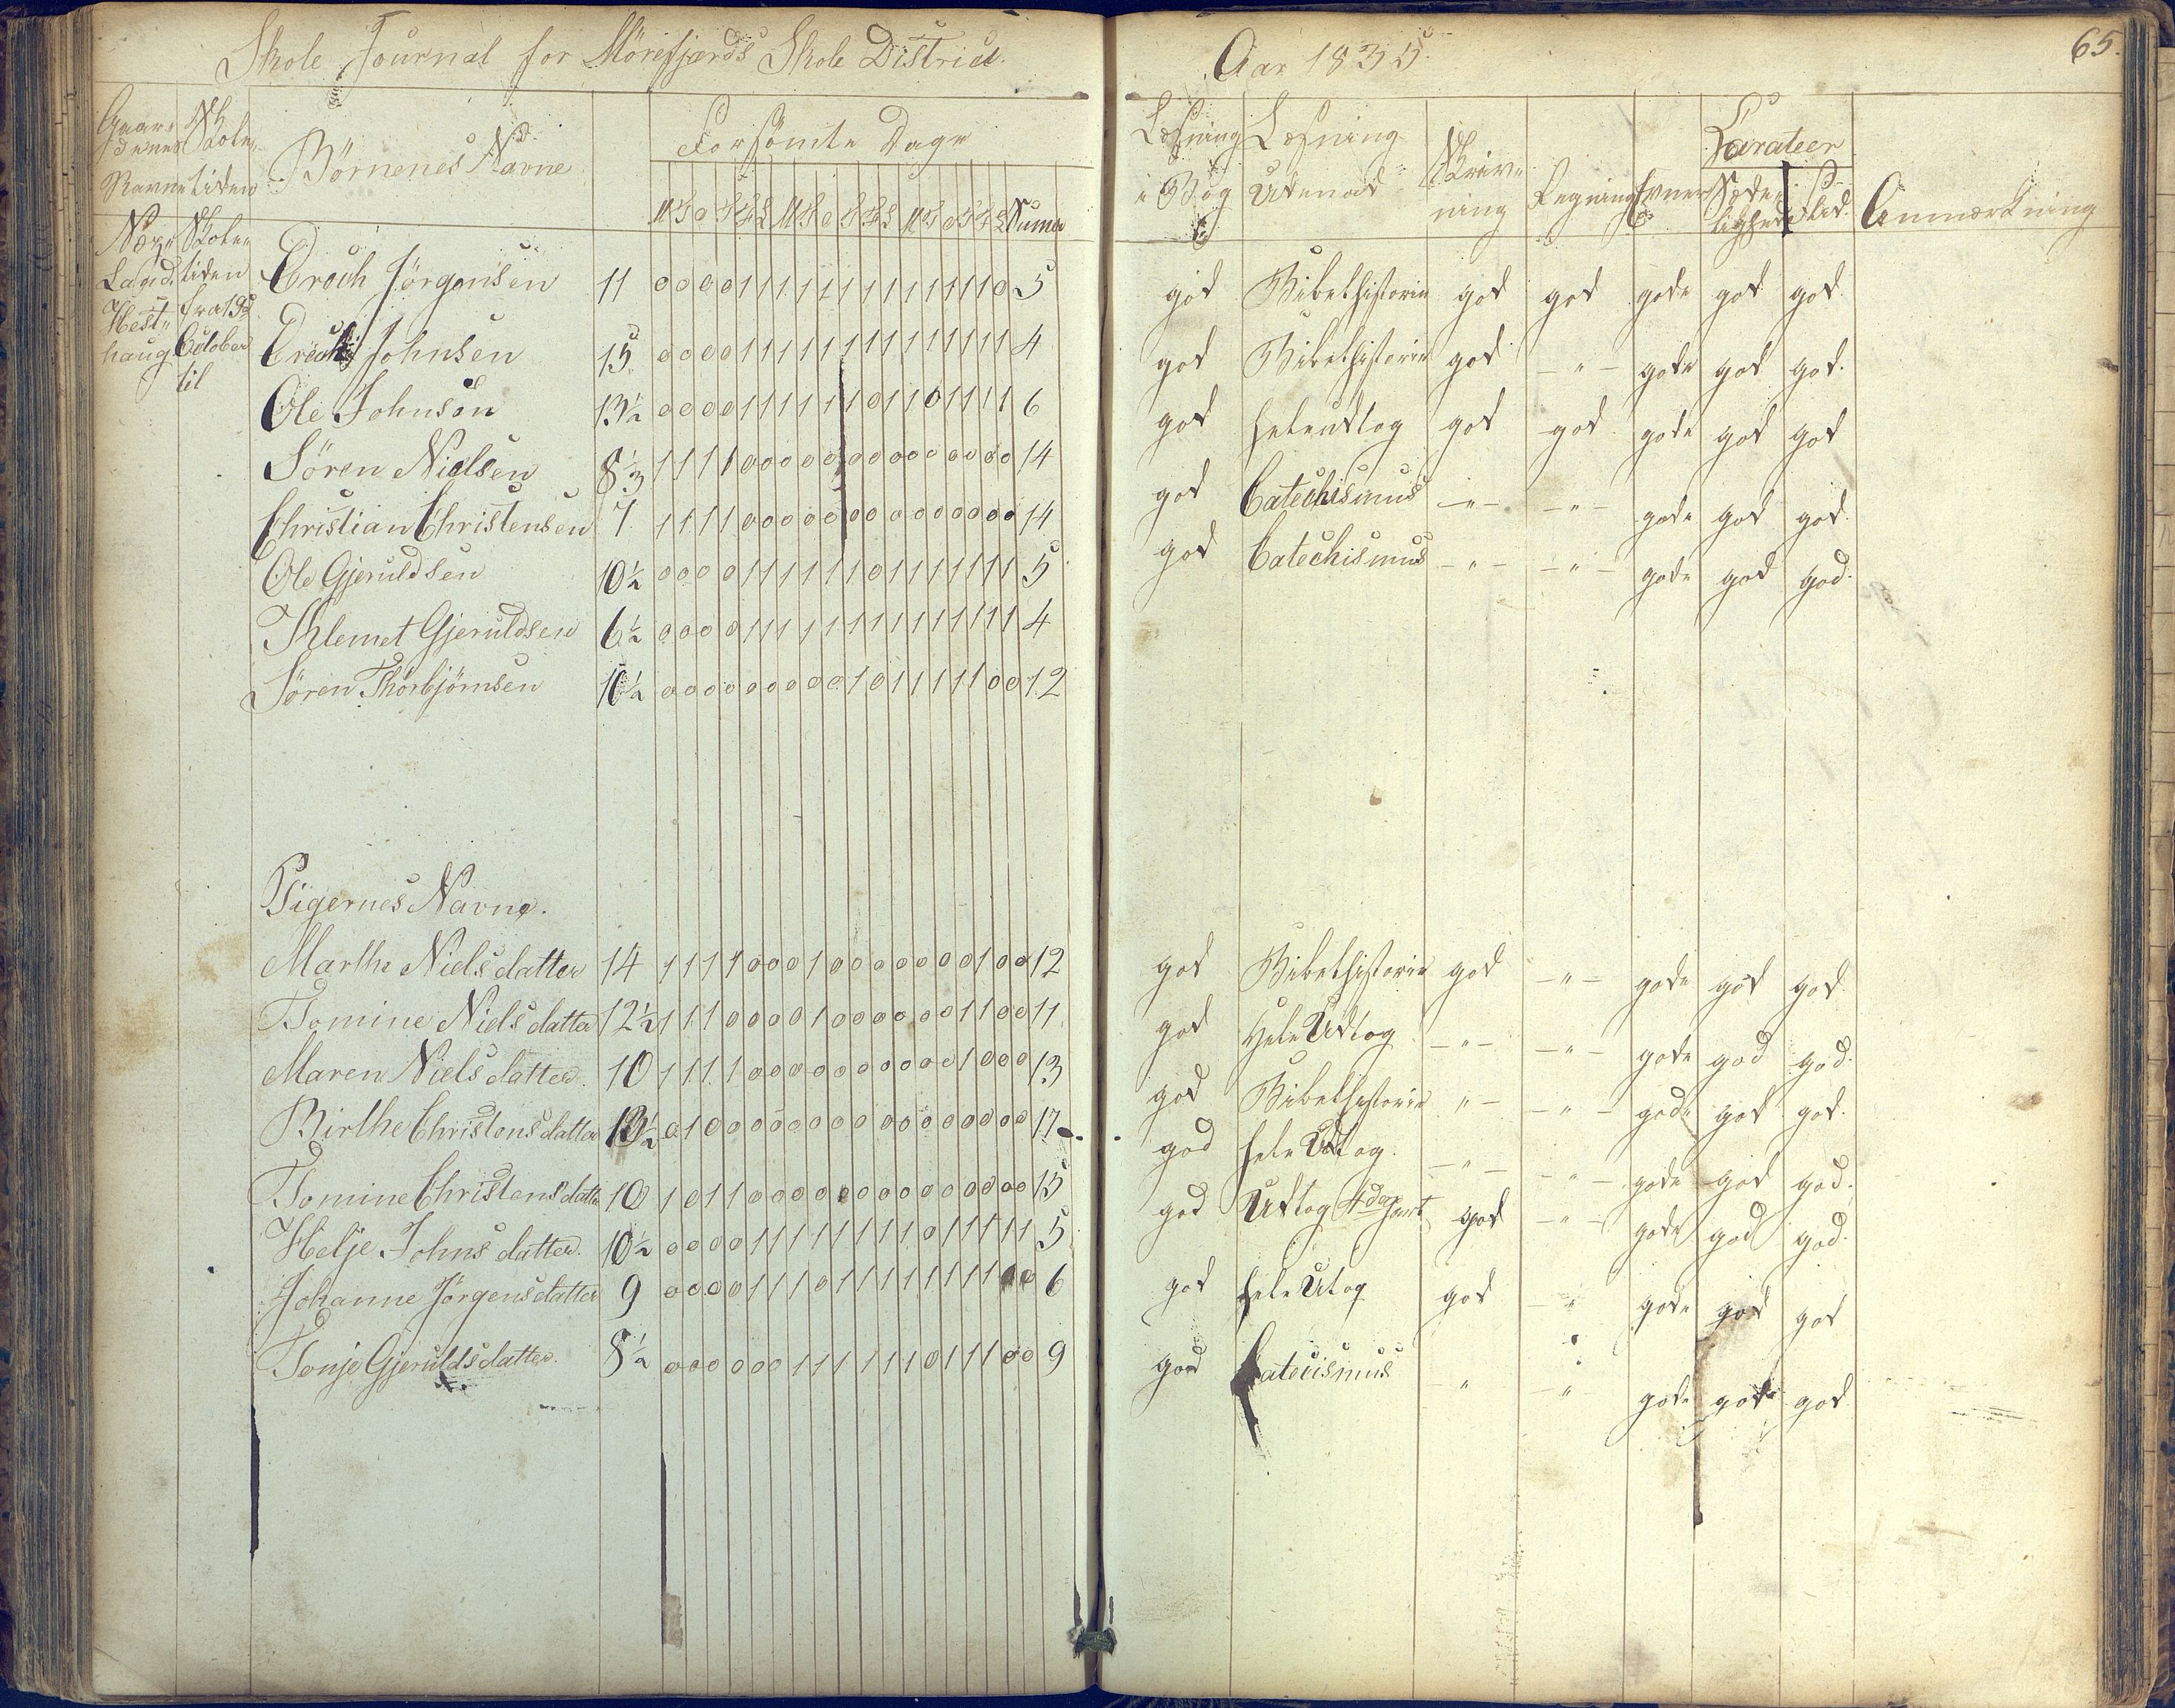 Skole Journal for Mörefjærds Skole District.
Aar 1835.
65.
Gaardenes Navne
Skoletiden
Börnenes Navne
Forsömte Dage
M T O T F L M T O T F L M T O T F L Suma
Læsning i Bog
Læsning Udenad
Skrivning
Regning
Evner
Karateer
Sædelighed
Flid.
Anmærkning
Skoletiden fra 19de October til
Hesthaug
Erich Jörgensen 11 0 0 0 0 1 1 1 1 1 1 1 1 1 1 1 1 1 0 5 god Bibelhistorie god god gode god god
Erich Johnsen 15 0 0 0 0 1 1 1 1 1 1 1 1 1 1 1 1 1 1 4 god Bibelhistorie god - " - gode god god.
Ole Johnsen 13½ 0 0 0 0 1 1 1 1 1 1 0 1 1 0 1 1 1 1 6 god hele udtog god god gode god god
Sören Nielsen 8⅓ 1 1 1 1 0 0 0 0 0 0 0 0 0 0 0 0 0 0 14 god Catechismus - " - - " - gode god god.
Christian Christensen 7 1 1 1 1 0 0 0 0 0 0 0 0 0 0 0 0 0 0 14 god Catechismus - " - - " - gode god god.
Ole Gjeruldsen 10½ 0 0 0 0 1 1 1 1 1 1 0 1 1 1 1 1 1 1 5
Thlemet Gjeruldsen 6½ 0 0 0 0 1 1 1 1 1 1 1 1 1 1 1 1 1 1 4
Sören Thorbjörnsen 10½ 0 0 0 0 0 0 0 0 0 1 0 1 1 1 1 1 0 0 12
Pigernes Navne.
Marthe Nielsdatter 14 1 1 1 1 0 0 0 1 0 0 0 0 0 0 0 1 0 0 12 god Bibelhistorie god - " - gode god god
Tomine Nielsdatter 12½ 1 1 1 0 0 0 0 1 0 0 0 0 0 0 1 1 0 0 11 god Hele Udtog - " - - " - gode god god.
Maren Nielsdatter. 10 1 1 1 1 0 0 0 0 0 0 0 0 0 0 1 0 0 0 13 god Bibelhistorie " - - " - gode god god.
Birthe Christensdatter 13½ 0 1 0 0 0 0 0 0 0 0 0 0 0 0 0 0 0 0 17 god hele Udtog. - " - - " - gode god god.
Tomine Christensdatter 10 1 0 1 1 0 0 0 0 0 0 0 0 0 0 0 0 0 0 15 god Udtog 4de part god - " - gode god god.
Helje Johns datter. 10½ 0 0 0 0 1 1 1 1 1 1 1 1 0 1 1 1 1 1 5
Johanne Jörgensdatter 9 0 0 0 0 1 1 1 0 1 1 1 1 1 1 1 1 0 0 6 god hele Utog god " gode god god
Tonje Gjeruldsdatter. 8½ 0 0 0 0 0 0 1 1 1 1 1 1 0 1 1 1 0 0 9 god Catecismus " - " gode god god